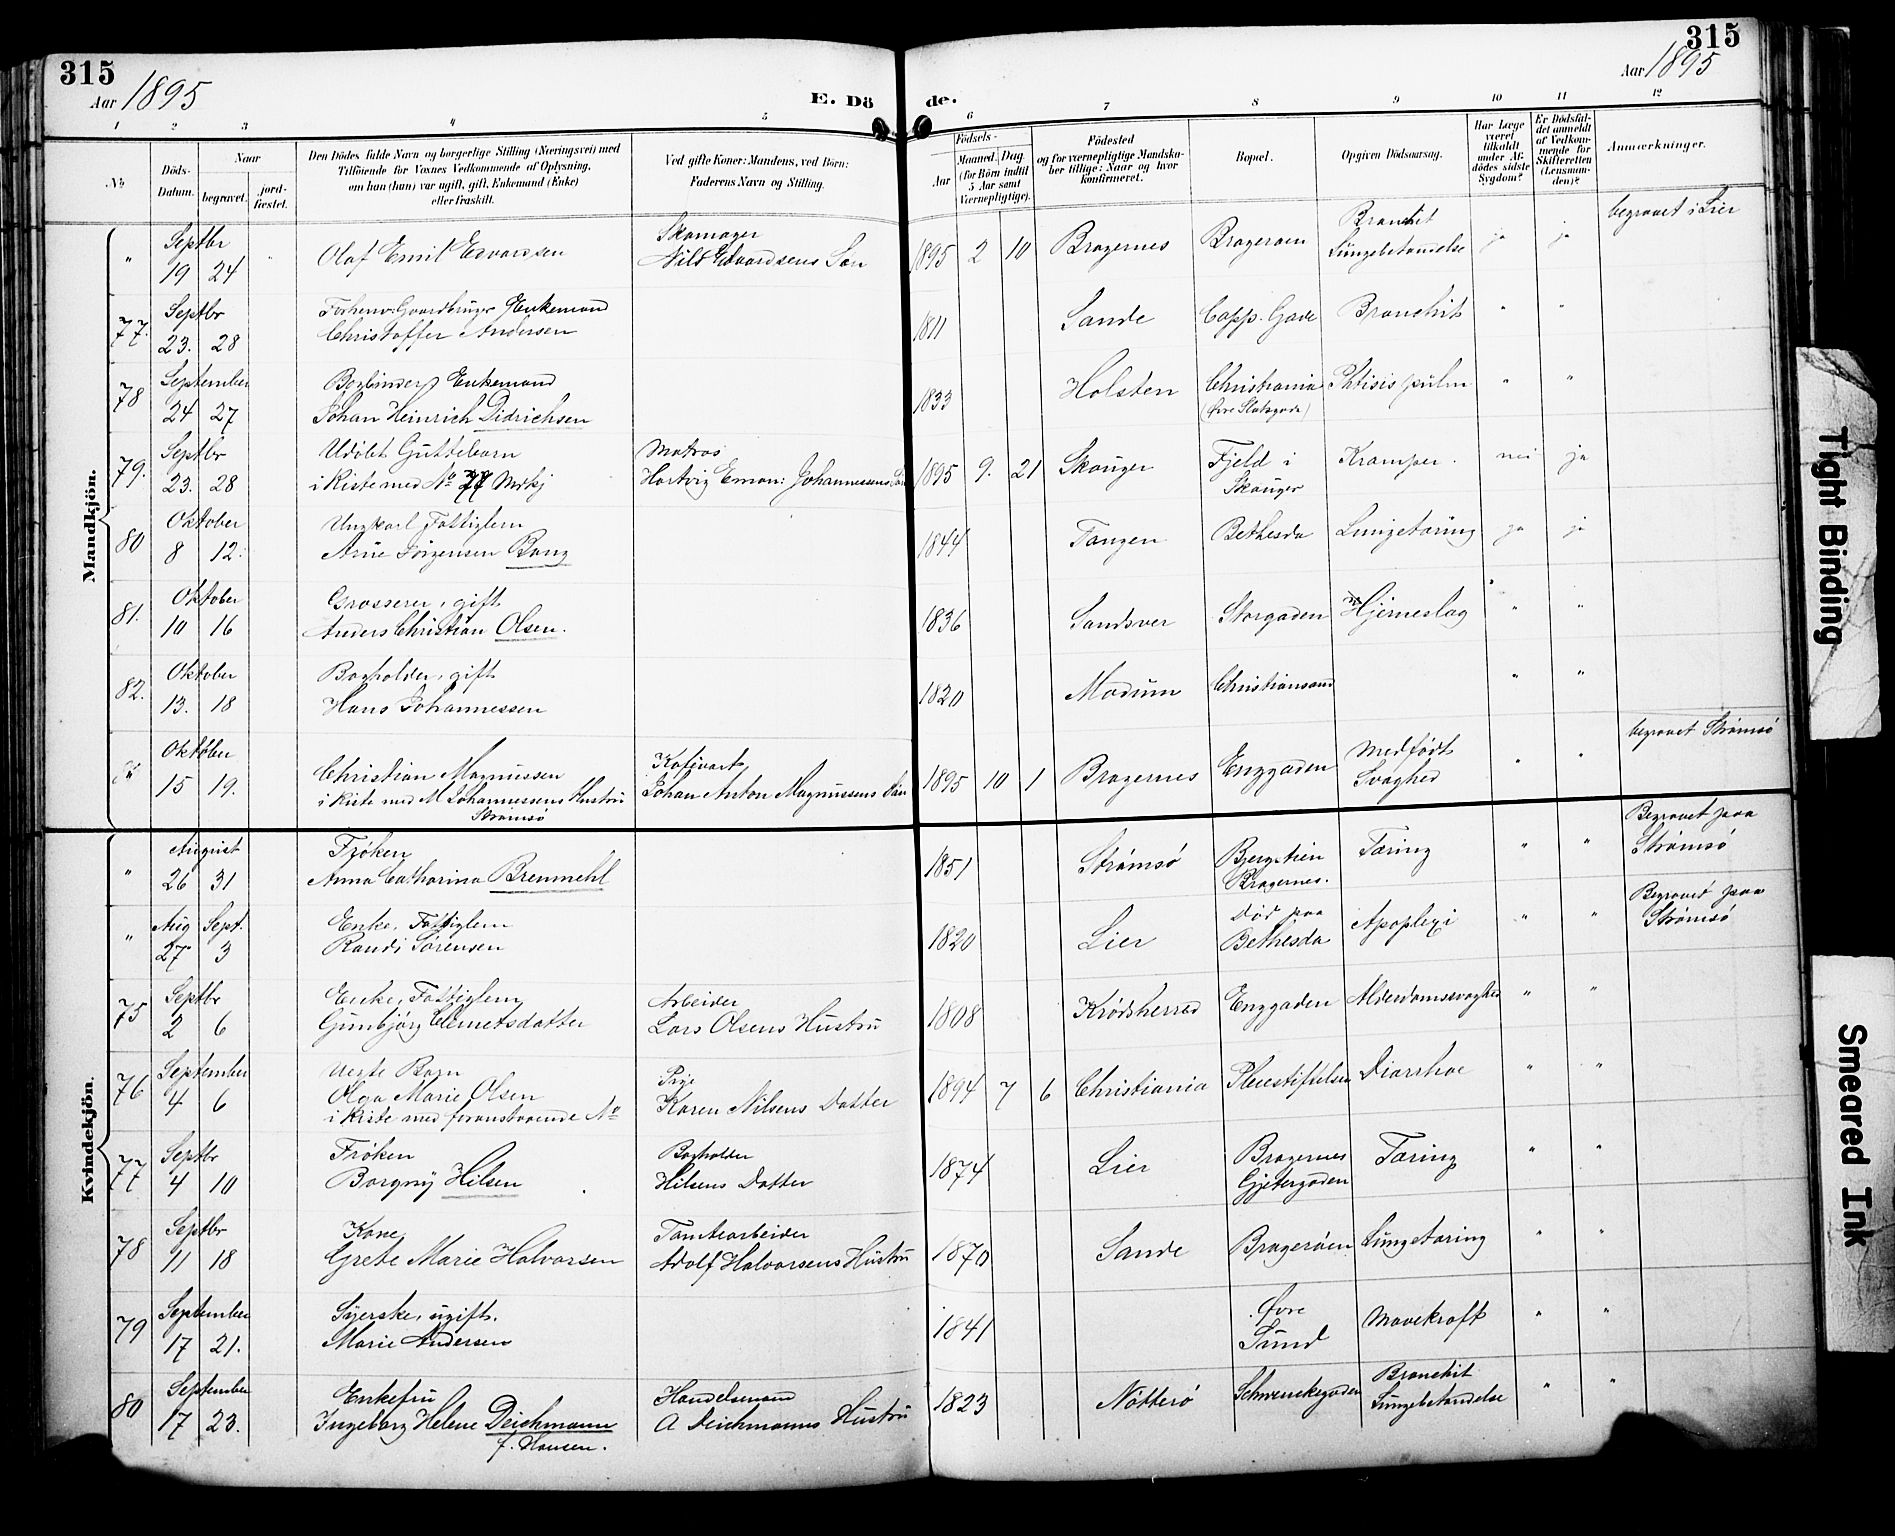 315
Aar 1895
E. Dö
de.
315
Aar 1895
1 2 3 4 5 6 7 8 9 10 11 12
No
Döds-Datum.
Naar
begravet.
jord-fæstet.
Den Dödes fulde Navn og borgerlige Stilling (Næringsvei) med Tilföiende for Voxnes Vedkommende af Oplysning, om han (hun) var ugift, gift, Enkemand (Enke) eller fraskilt.
Ved gifte Koner: Mandens, ved Börn: Faderens Navn og Stilling.
Födsels-
Aar
Maaned. Dag.
(for Börn indtil 5 Aar samt Værnepligtige).
Födested
og for værnepligtige Mandska-ber tillige: Naar og hvor konfirmeret.
Bopæl.
Opgiven Dödsaarsag.
Har Læge været tilkaldt under Af-dödes sidste Sygdom?
Er Dödsfal-det anmeldt af Vedkom-mende for Skifteretten (Lensman-den)?
Anmærkninger.
Mandkjön.
" Septbr 19 24 Olaf Emil Edvardsen Skomager Nils Edvardsens Søn 1895 2 10 Bragernes Brageröen Bronchit Lungebetændelse ja ja begravet i Lier
77. Septbr 23. 28 Forhenv: Gaardbruger Enkemand
Christoffer Andersen 1811 Sande Capp. Gade Bronchit " "
78 September 24 27 Bogbinder Enkemand
Johan Heinrich Didrichsen 1833 Holsten Christiania (Øvre Slotsgade) Phtisis pulm " "
79. Septbr 23. 28 Udöbt Guttebarn
i Kiste med No 77 Mdkj Matros
Hartvig Eman: Johannessens Søn 1895 9. 21 Skouger Fjeld i Skouger Kramper. nei ja
80 Oktober 8 12. Ungkarl Fattiglem
Arne Jörgensen Bang 1844 Tangen Bethesda Lungetæring ja ja
81. Oktober 10 16 Grosserer, gift
Anders Christian Olsen. 1836 Sandsver Storgaden Hjerneslag " "
82. Oktober 13. 18 Bogholder, gift
Hans Johannessen 1820 Modum Christiansand " "
Oktober 15 19. Christian Magnussen
i Kiste med M Johannessens Hustru
Strömsö Kafévært
Johan Anton Magnussens Søn 1895 10 1 Bragernes Enggaden Medfödt Svaghed " " begravet Strömsö
Kvindekjön.
" August 26 31 Fröken
Anna Catharina Bremmehl 1851 Strömsö Bergstien Bragernes. Tæring " " Begravet paa Strømsø
" Aug 27 Sept. 3 Enke, Fattiglem
Randi Sørensen 1820 Lier död paa Bethesda Apoplexi " " Begraved paa Strømsø
75 Septbr 2 6 Enke, Fattiglem
Gunbjörg Clemetsdatter Arbeider
Lars Olsens Hustru 1808 Krødsherred Enggaden Alderdomssvaghed " "
76 September 4 6 Uegte Barn
Olga Marie Olsen
i Kiste med foranstaaende No Pige
Karen Nilsens Datter 1894 7 6 Christiania Pleiestiftelsen Diarrhoe " "
77 Septbr 4 10 Fröken
Borgny Hilsen Bogholder
Hilsens Datter 1874 Lier Bragernes Gjetergaden Tæring " "
78 Septbr 11 18 Kone,
Grete Marie Halvorsen Tomtearbeider
Adolf Halvorsens Hustru 1870 Sande Brageröen Lungetæring " "
79 September 17 21. Syerske, ugift.
Marie Andersen 1841 Øvre Sund Mavekræft " "
80 September 17 23. Enkefru
Ingeborg Helene Deichmann
f. Hansen. Handelsmand
A Deichmanns Hustru 1823 Nötterö Schwenckegaden Bronchit Lungebetændelse " "
Tight Binding
Smeared Ink